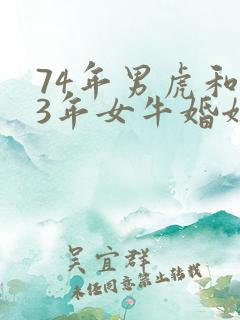 74年男虎和
3年女牛婚姻
吴宜群
未经同意禁止转载